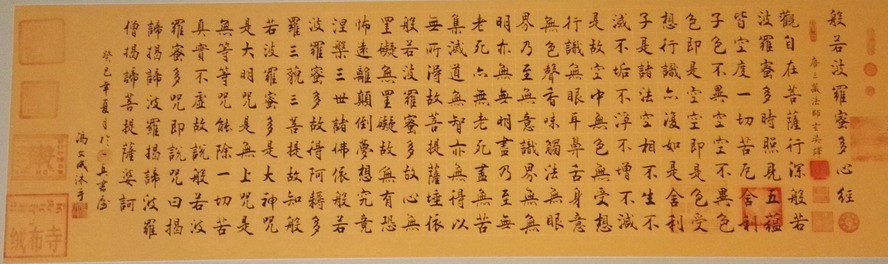 般若波羅蜜多心經
唐三藏法師玄奘譯
觀自在菩薩行深般若
波羅蜜多時照見五蘊
皆空度一切苦厄舍利
子色不異空空不異色
色即是空空即是色受
想行識亦復如是舍利
子是諸法空相不生不
滅不垢不淨不增不減
是故空中無色無受想
行識無眼耳鼻舌身意
無色聲香味觸法無眼
界乃至無意識界無無
明亦無無明盡乃至無
老死亦無老死盡無苦
集滅道無智亦無得以
無所得故菩提薩埵依
般若波羅蜜多故心無
罣礙無罣礙故無有恐
怖遠離顛倒夢想究竟
涅槃三世諸佛依般若
波羅蜜多故得阿耨多
羅三藐三菩提故知般
若波羅蜜多是大神咒
是大明咒是無上咒是
無等等咒能除一切苦
真實不虛故說般若波
羅蜜多咒即說咒曰揭
諦揭諦波羅揭諦波羅
僧揭諦菩提薩婆訶
癸巳年夏月於書屋
馮沐手
絨布寺